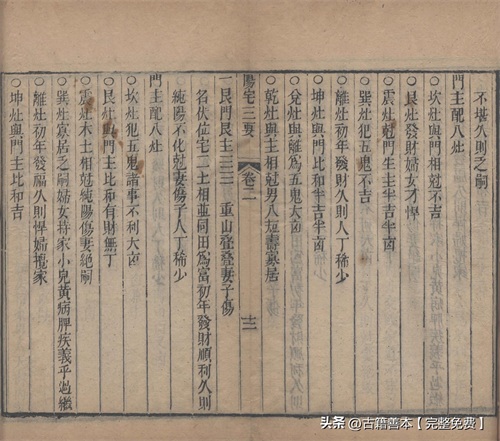 不堪久則乏嗣
門主配八灶
○坎灶與門相尅不吉
○艮灶發財婦女才悍
○震灶尅門生主半吉半凶
○巽灶犯五鬼不吉
○離灶初年發財久則人丁稀少
○坤灶與門比和半吉半凶
○兌灶與離爲五鬼大凶
○乾灶與離相尅男人短壽寡居
陽宅三要
卷二
十二
一艮門艮主三三 重山叠叠妻子傷
名伏位宅二土相並同田爲富初年發財順利久則
純陽不化尅妻傷子人丁稀少
門主配八灶
○坎灶犯五鬼諸事不利大凶
○艮灶與門主比和有財無丁
○震灶木土相尅純陽傷妻絕嗣
○巽灶寡居乏嗣婦女持家小兒黃病脾疾義子過繼
○離灶初年發福久則悍婦攪家
○坤灶與門主比和吉
头条 @古籍善本【完整免费】